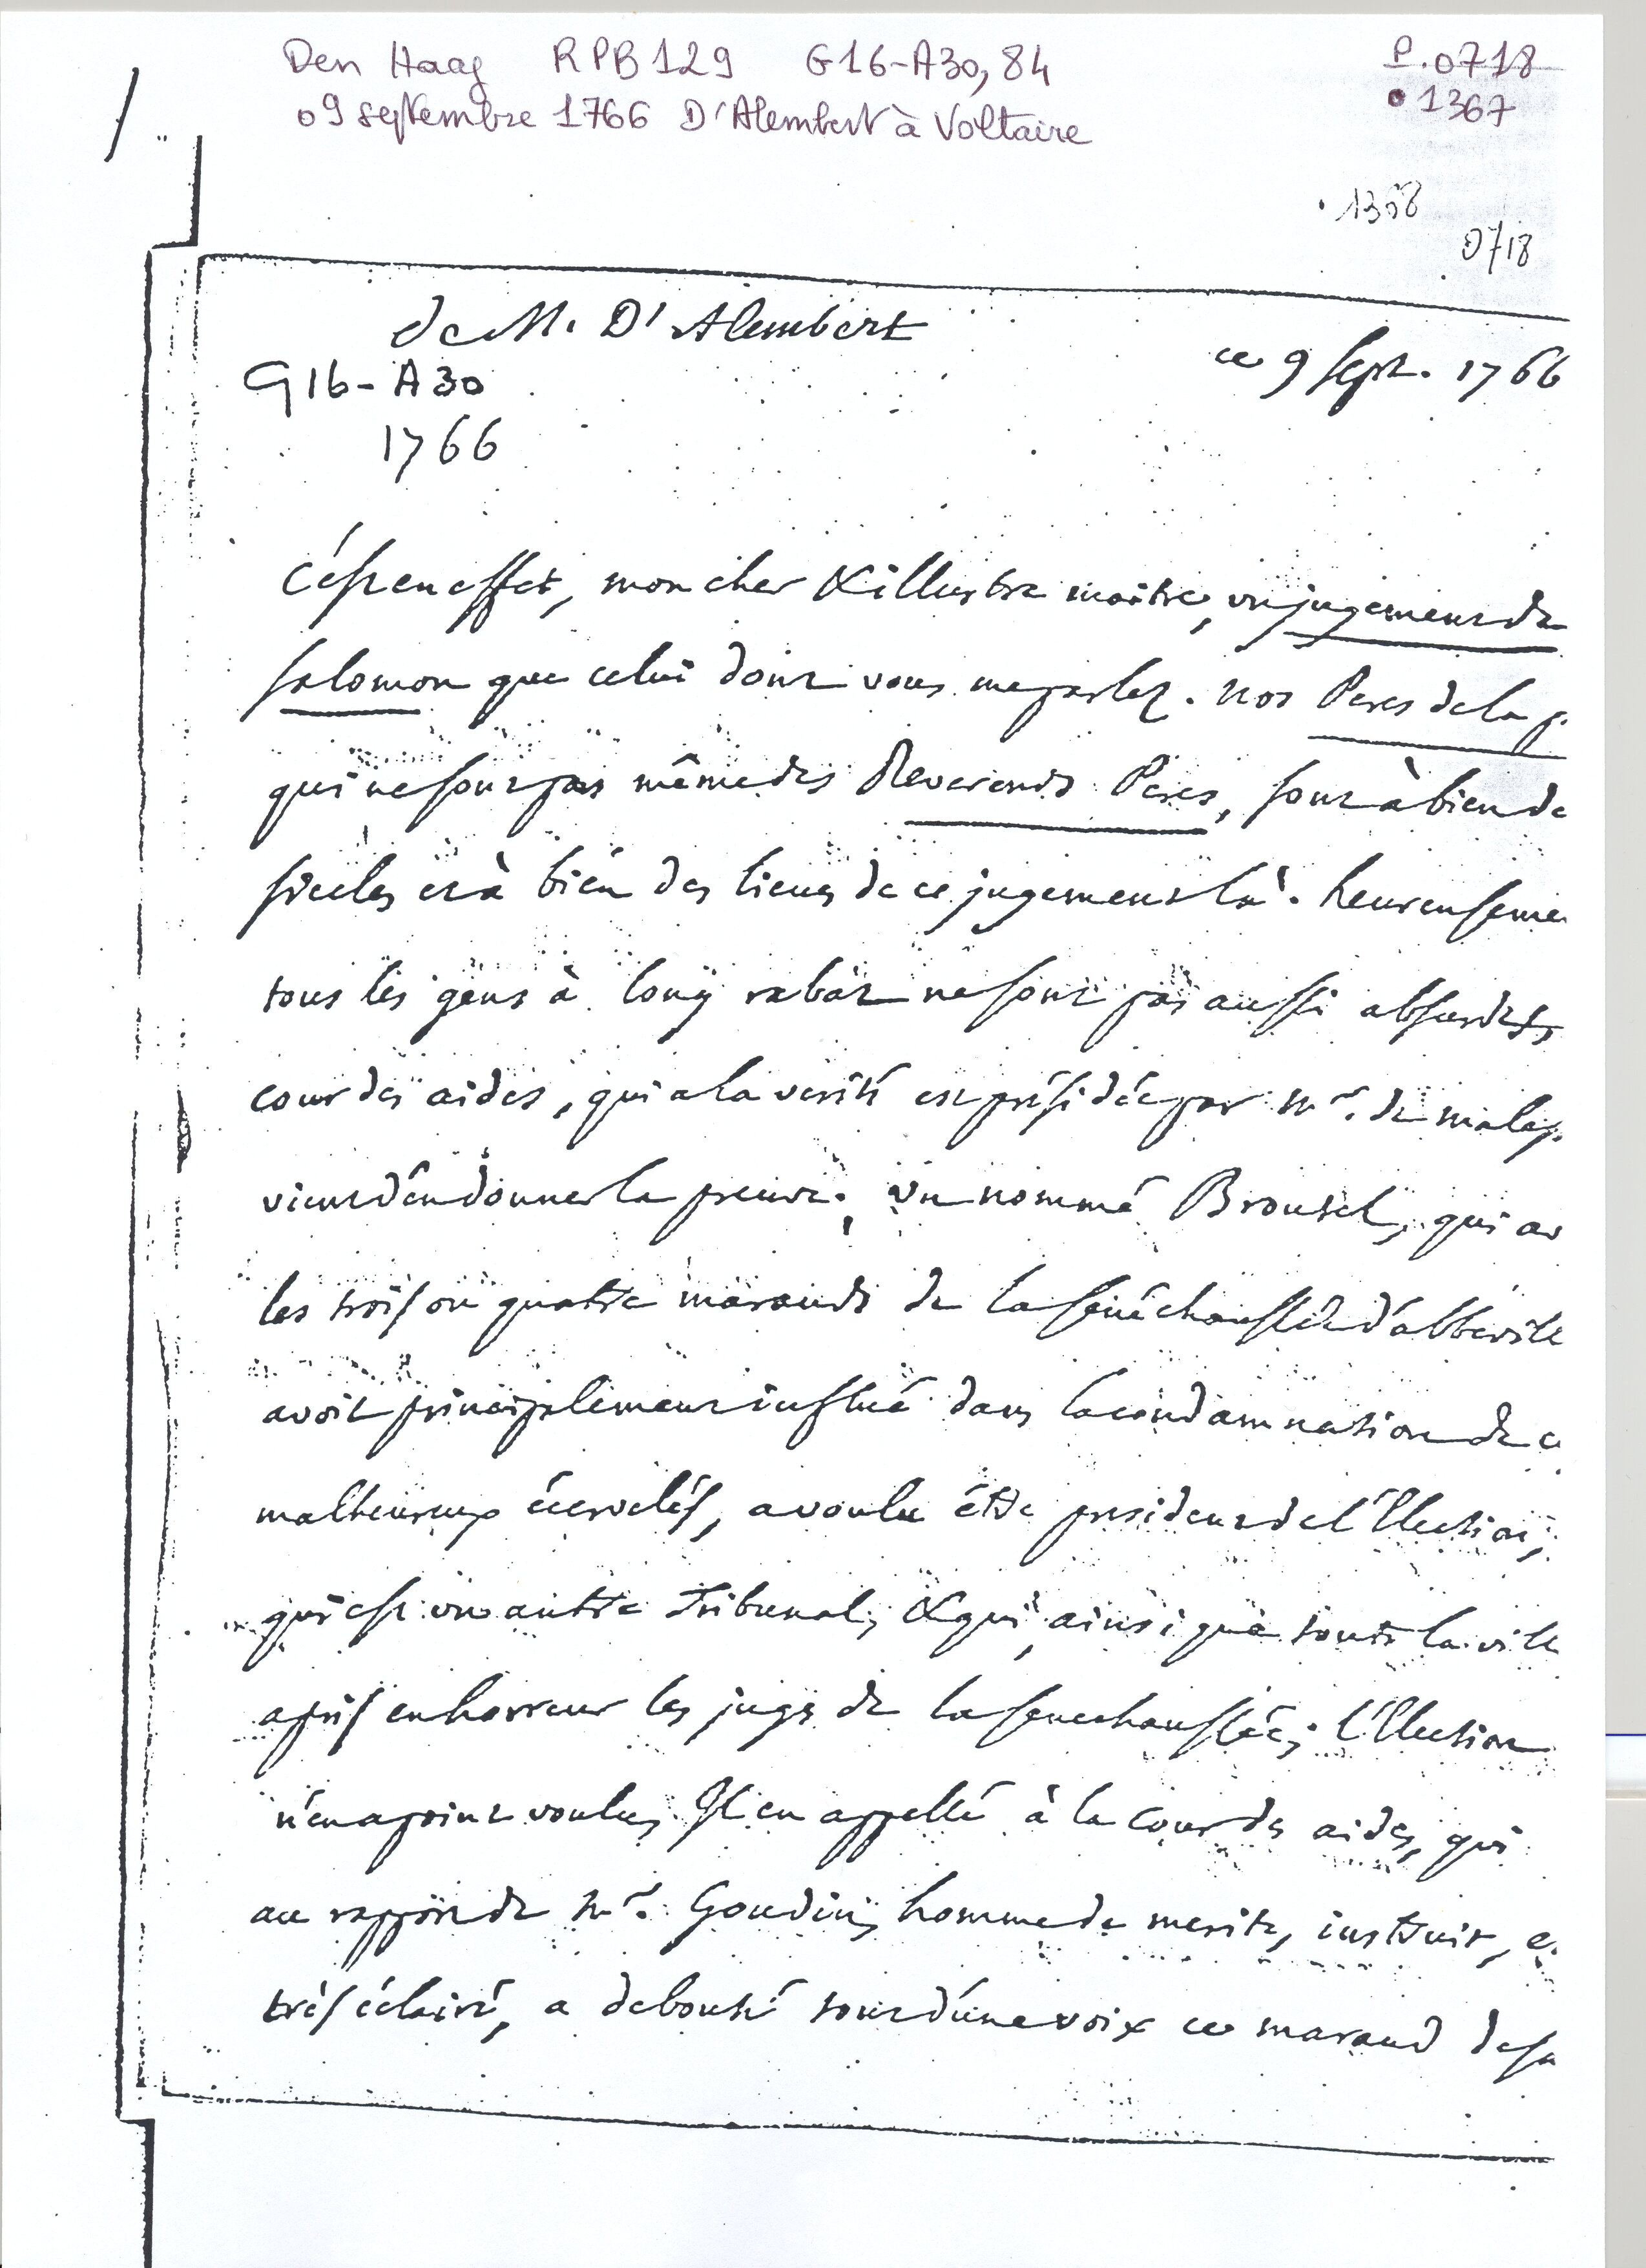 Den Haag RPB129 G16-A30, 84
09 septembre 1766 D'Alembert à Voltaire
P.0718
1367
1368
0718
de M. D'Alembert
ce 9 sept. 1766
G16-A30
1766
C'est en effet, mon cher & illustre maitre, un jugement de
Salomon que celui dont vous me parlez. nos Peres de la p
qui ne sont pas même des Reverends Peres, sont à bien de
siecles et à bien des lieues de ce jugement là. heureuseme
tous les gens à long rabat ne sont pas aussi absurdes,
cour des aides, qui a la verité est présidée par mr. de malep
vient d'en donner la preuve; un nommé Broutel, qui av
les trois ou quatre marauds de la sénéchaussée d'abbevill
avoit principalement influé dans la condamnation de c
malheureux écervelés, a voulu être president de l'Election,
qui est un autre Tribunal, & qui, ainsi que toute la ville
a pris en horreur les juges de la senechaussée; l'Election
n'en a point voulu, Il en appellé à la cour des aides, qui
au rapport de mr. Goudin, homme de merite, instruit, e
très éclairé, a debouté tout d'une voix ce maraud de sa